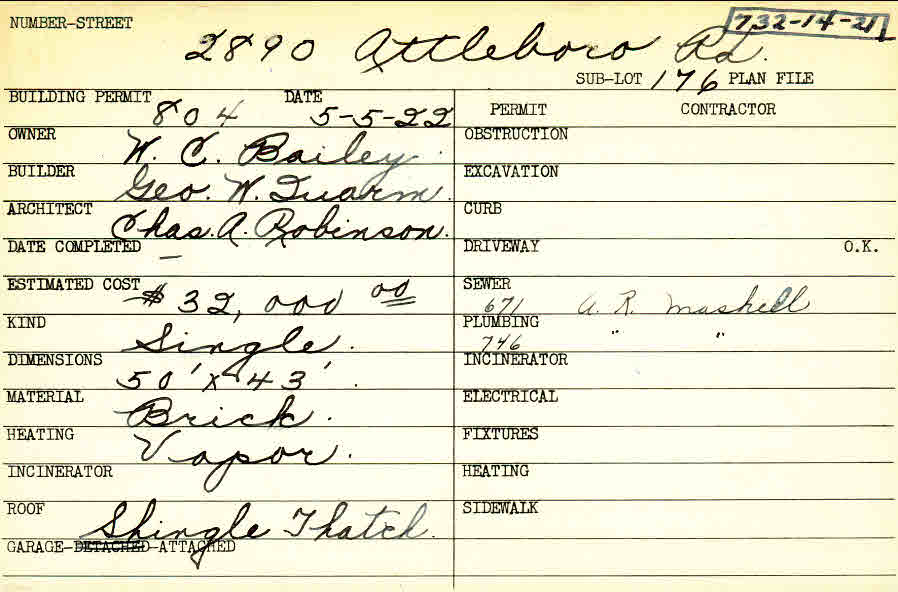 NUMBER-STREET
732-14-21
2890 Attleboro Rd.
SUB-LOT 176 PLAN FILE
BUILDING PERMIT 804 DATE 5-5-22
OWNER W. C. Bailey.
BUILDER Geo. W.
ARCHITECT Chas. A. Robinson.
DATE COMPLETED —
ESTIMATED COST $32,000 00
KIND Single.
DIMENSIONS 50' x 43'.
MATERIAL Brick.
HEATING Vapor.
INCINERATOR
ROOF Shingle Thatch.
GARAGE-DETACHED-ATTACHED
PERMIT CONTRACTOR
OBSTRUCTION
EXCAVATION
CURB
DRIVEWAY O.K.
SEWER 671 A. R. Mashell
PLUMBING 746 " "
INCINERATOR
ELECTRICAL
FIXTURES
HEATING
SIDEWALK